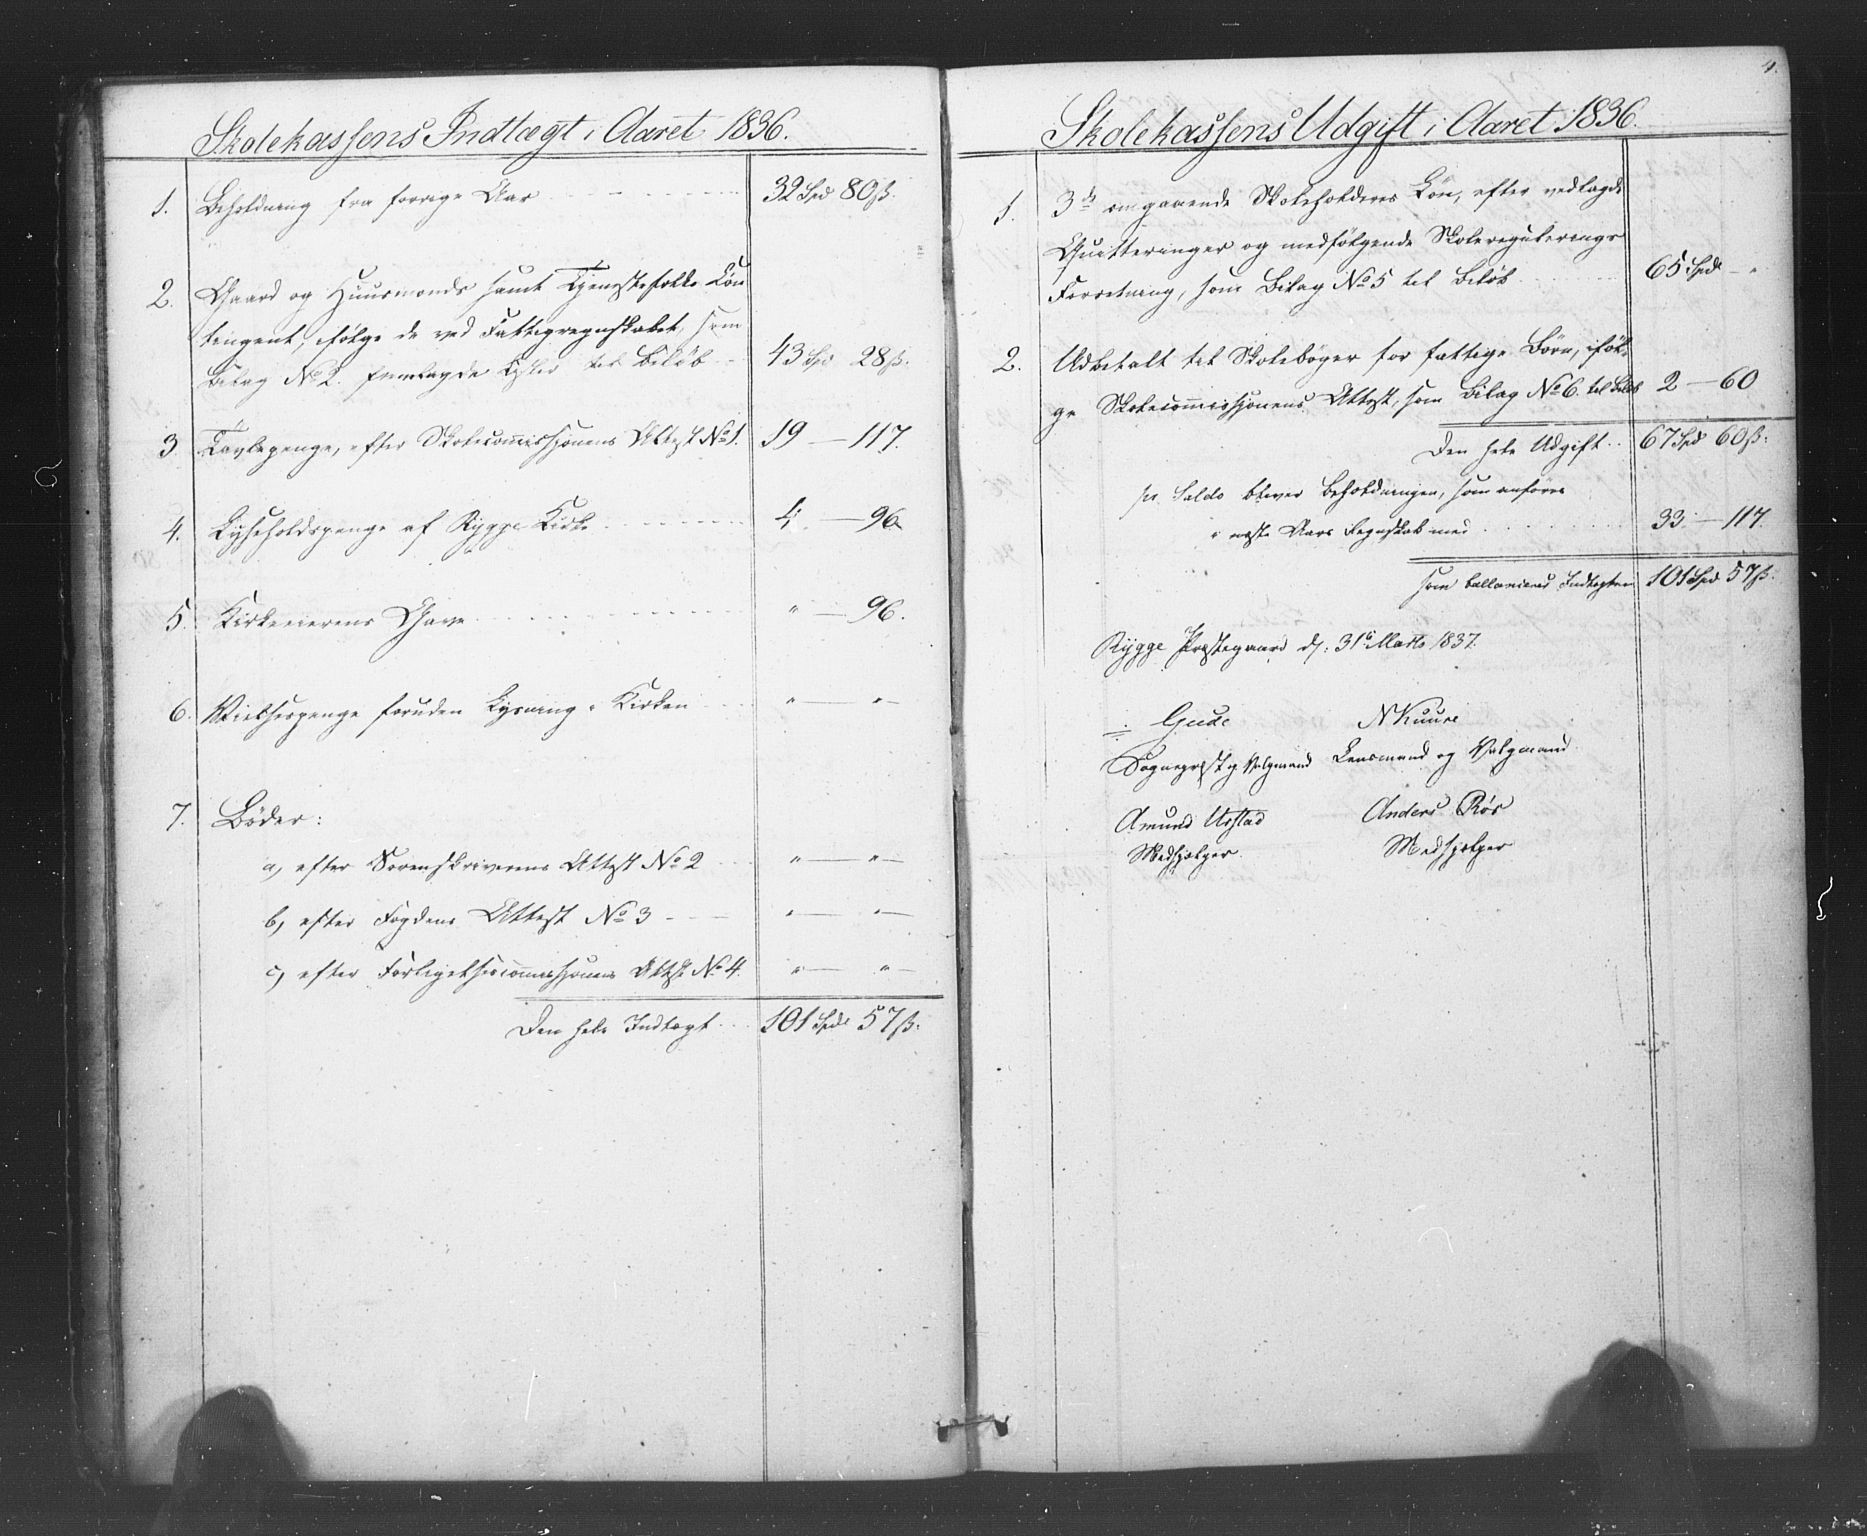 Skolekassens Indtægt i Aaret 1836.
1. Beholdning fra forrige Aar 32 Spd 80 ß.
2. Gaard og Huusmænds samt Tjenestefolks Con
tingent, ifølge de ved Fattigregnskabet, som
Bilag No 2. fremlagde Lister til Beløb 43 Spd 28 ß.
3. Tavlepenge, efter Skolecommissionens Attest No 1. 19 — 117.
4. Lyseholdspenge af Rygge Kirke 4. — 96.
5. Kirkeeierens Gave " — 96.
6. Vielsespenge foruden Lysning i Kirken " — " —
7. Bøder:
a, efter Sorenskriverens Attest No 2 " — " —
b, efter Fogdens Attest No 3 " — " —
c, efter Forligelsescommissionens Attest No 4. " — " —
Den hele Indtægt 101 Spd 57 ß.
4.
Skolekassens Udgift i Aaret 1836.
1. 3de omgaaende Skoleholderes Løn, efter vedlagde
Quitteringer og medfølgende Skoleregulerings
Forretning, som Bilag No 5 til Beløb 65 Spd — "
2. Udbetalt til Skolebøger for fattige Børn, iføl-
ge Skolecommissionens Attest, som Bilag No 6. til Beløb 2 — 60
Den hele Udgift 67 Spd 60 ß.
pr. Saldo bliver Beholdningen, som anføres
i næste Aars Regnskab med 33 — 117.
som ballancerer Indtægten 101 Spd 57 ß.
Rygge Præstegaard d. 31te Marts 1837.
Gude NKuure
Sognepræst og Valgmand Lensmand og Valgmand
Amund Urstad Anders Røs
Medhjælper. Medhjelper